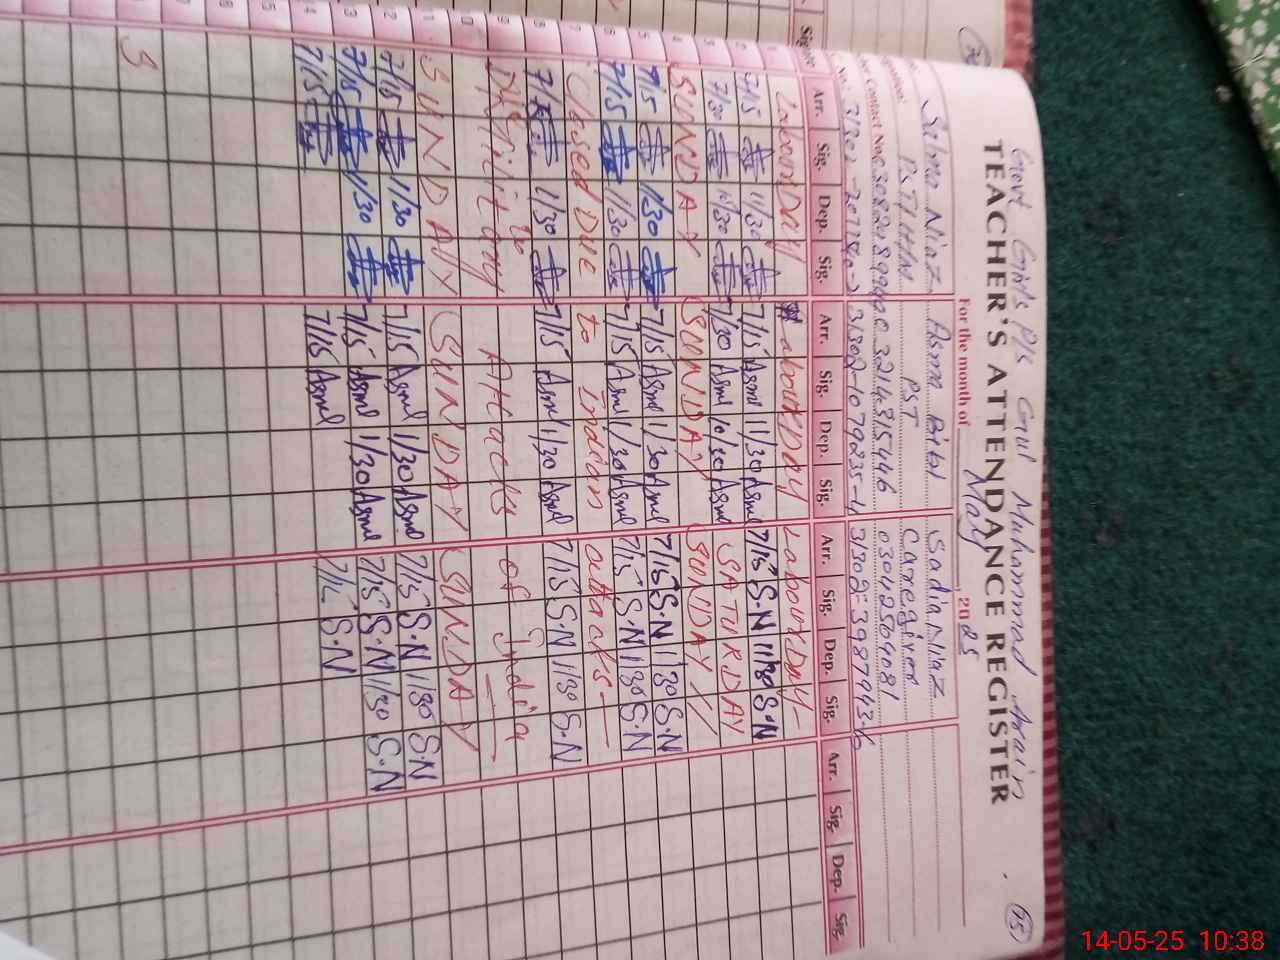 Govt Girls P/S Gul Muhammad Arain
75
TEACHER'S ATTENDANCE REGISTER
For the month of May 2025
Salma Niaz Asma Bibi Sadia Niaz
PST/H/M PST Caregiver
Contact No. 03214315446 03042569081
Arr. Sig. Dep. Sig. Arr. Sig. Dep. Sig. Arr. Sig. Dep. Sig. Arr. Sig. Dep. Sig.
1 Labour Day Labour Day Labour Day
2 7/15 11/30 7/15 Asml 11/30 Asml 7/15 S.N 11/30 S.N
3 7/30 10/30 7/30 Asml 10/30 Asml SATURDAY
4 SUNDAY SUNDAY SUNDAY
5 7/15 1/30 7/15 Asml 1/30 Asml 7/15 S.N 1/30 S.N
6 7/15 1/30 7/15 Asml 1/30 Asml 7/15 S.N 1/30 S.N
7 Closed Due to Indian attacks
8 7/15 1/30 7/15 Asml 1/30 Asml 7/15 S.N 1/30 S.N
9 to Attacks of India
10 Military
11 SUNDAY SUNDAY SUNDAY
12 7/15 1/30 7/15 Asml 1/30 Asml 7/15 S.N 1/30 S.N
13 7/15 1/30 7/15 Asml 1/30 Asml 7/15 S.N 1/30 S.N
14 7/15 7/15 Asml 7/15 S.N
15
16
17
18
14-05-25 10:38